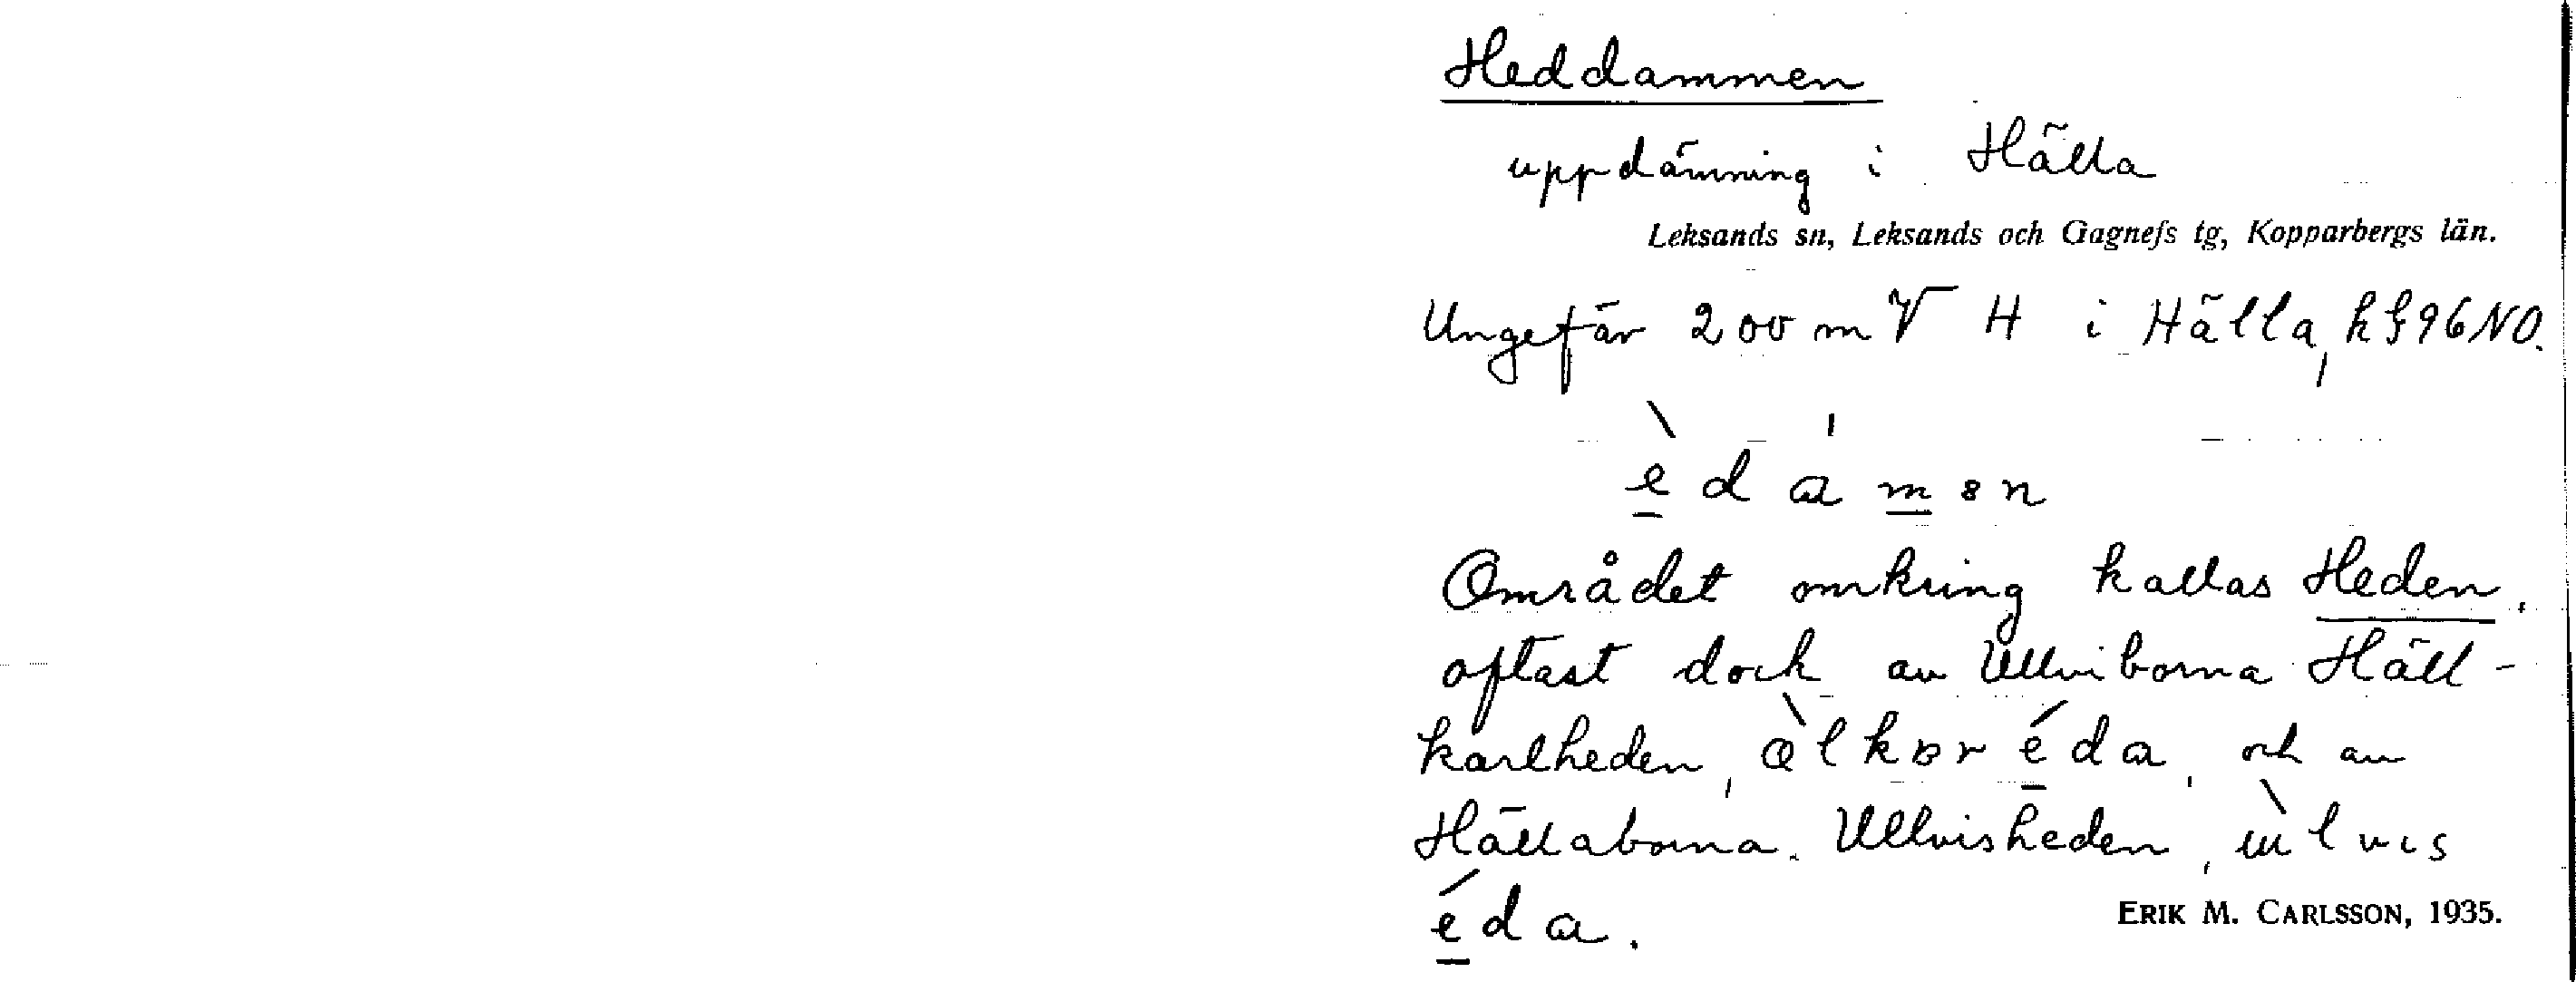 Heddammen
uppdämning i Hälla
Leksands sn, Leksands och Gagnefs tg, Kopparbergs län.
Ungefär 200 m V H i Hälla, kf 96 NO.
è d a m ə n
Området omkring kallas Heden,
oftast dock av Ullviborna Häll-
karlheden, àlkɒr éda, och av
Hällaborna. Ullvisheden, ùlvis
éda.
ERIK M. CARLSSON, 1935.